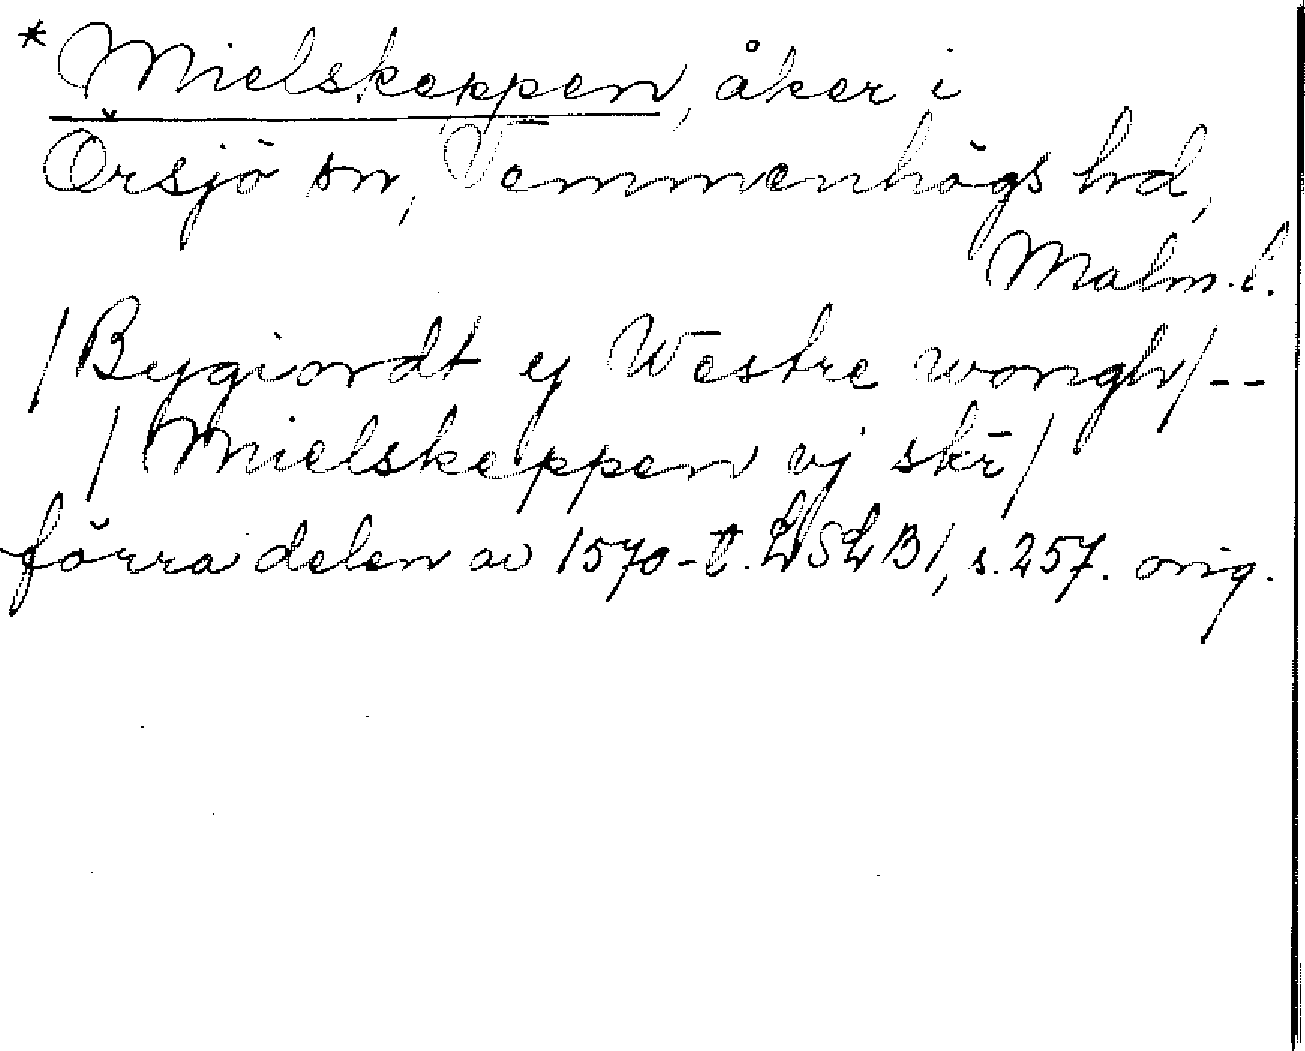 *Mielskeppen, åker i
Örsjö sn, Vemmenhögs hd,
Malm. l.
/Bygiordt ej Westre wongh/--
/Mielskeppen vj skr̄/
förra delen av 1570-t. LSLB1, s. 257. orig.